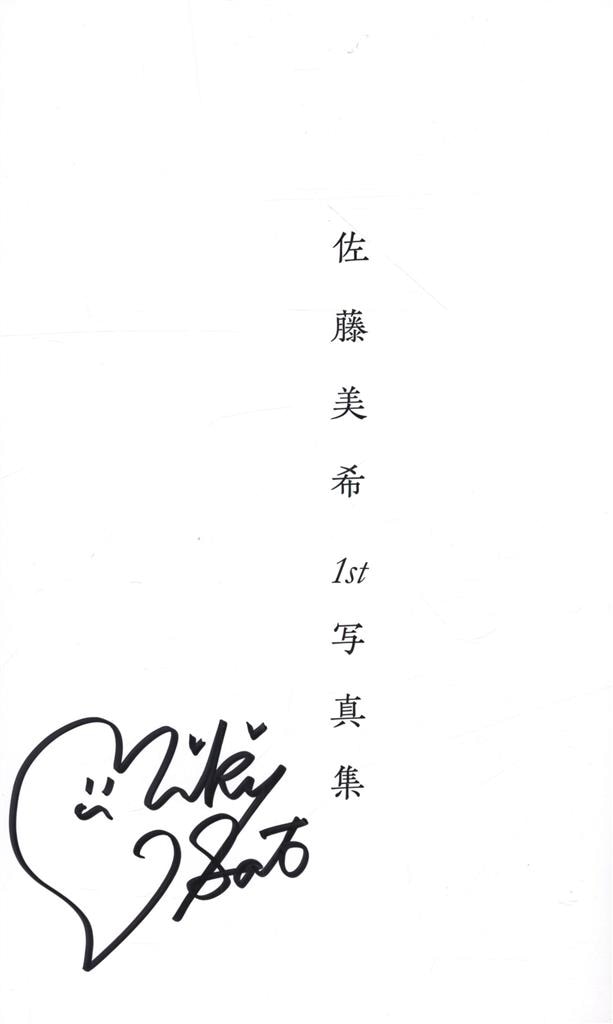 佐藤美希 1st写真集
Miky
Sato